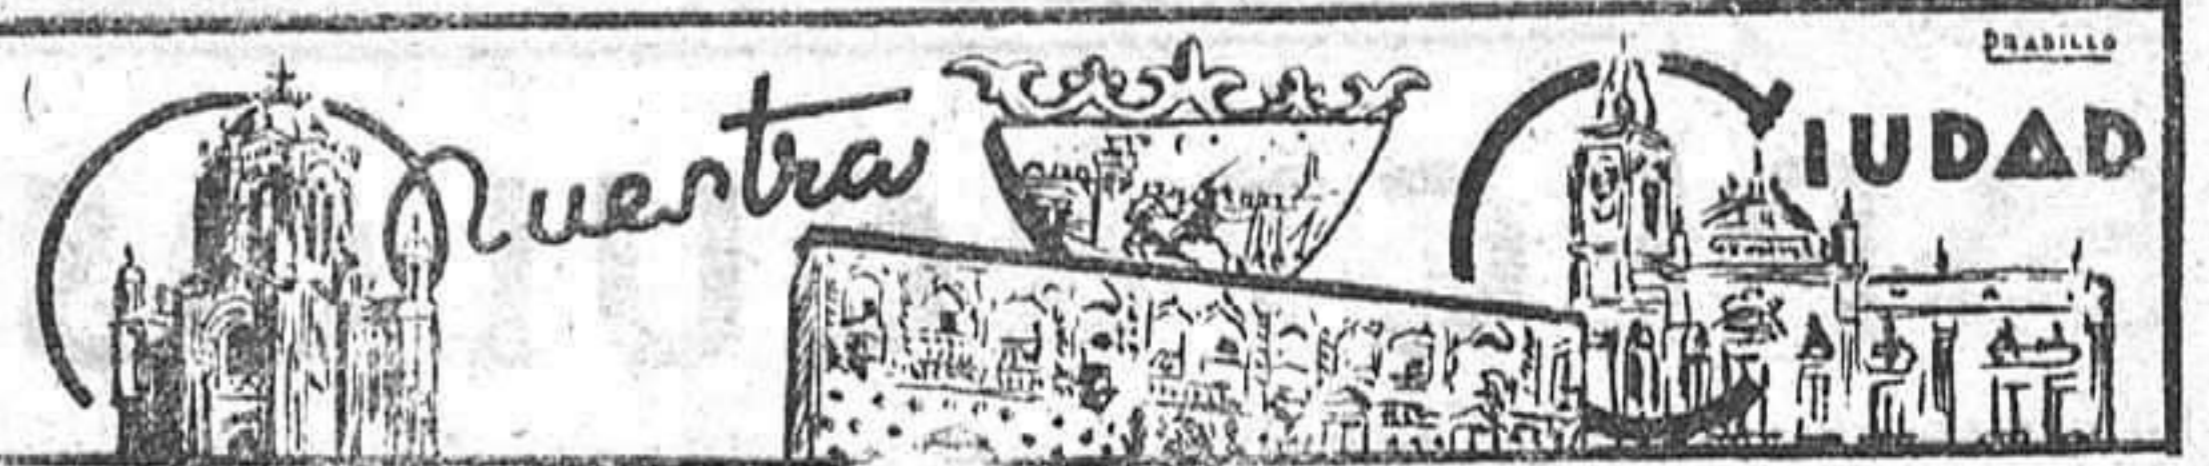 Nuestra CIUDAD
PRADILLO